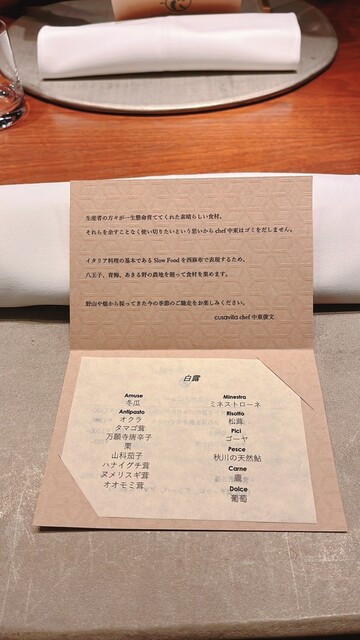 生産者の方々が一生懸命育ててくれた素晴らしい食材。
それらを余すことなく使い切りたいという思いから chef 中東はゴミをだしません。
イタリア料理の基本である Slow Food を西麻布で表現するため、
八王子、青梅、あきる野の農地を廻って食材を集めます。
野山や畑から採ってきた今の季節のご馳走をお楽しみください。
cusavilla chef 中東俊文
白露
Amuse
冬瓜
Antipasto
オクラ
タマゴ茸
万願寺唐辛子
栗
山科茄子
ハナイグチ茸
ヌメリスギ茸
オオモミ茸
Minestra
ミネストローネ
Risotto
松茸
Pici
ゴーヤ
Pesce
秋川の天然鮎
Carne
鹿
Dolce
葡萄